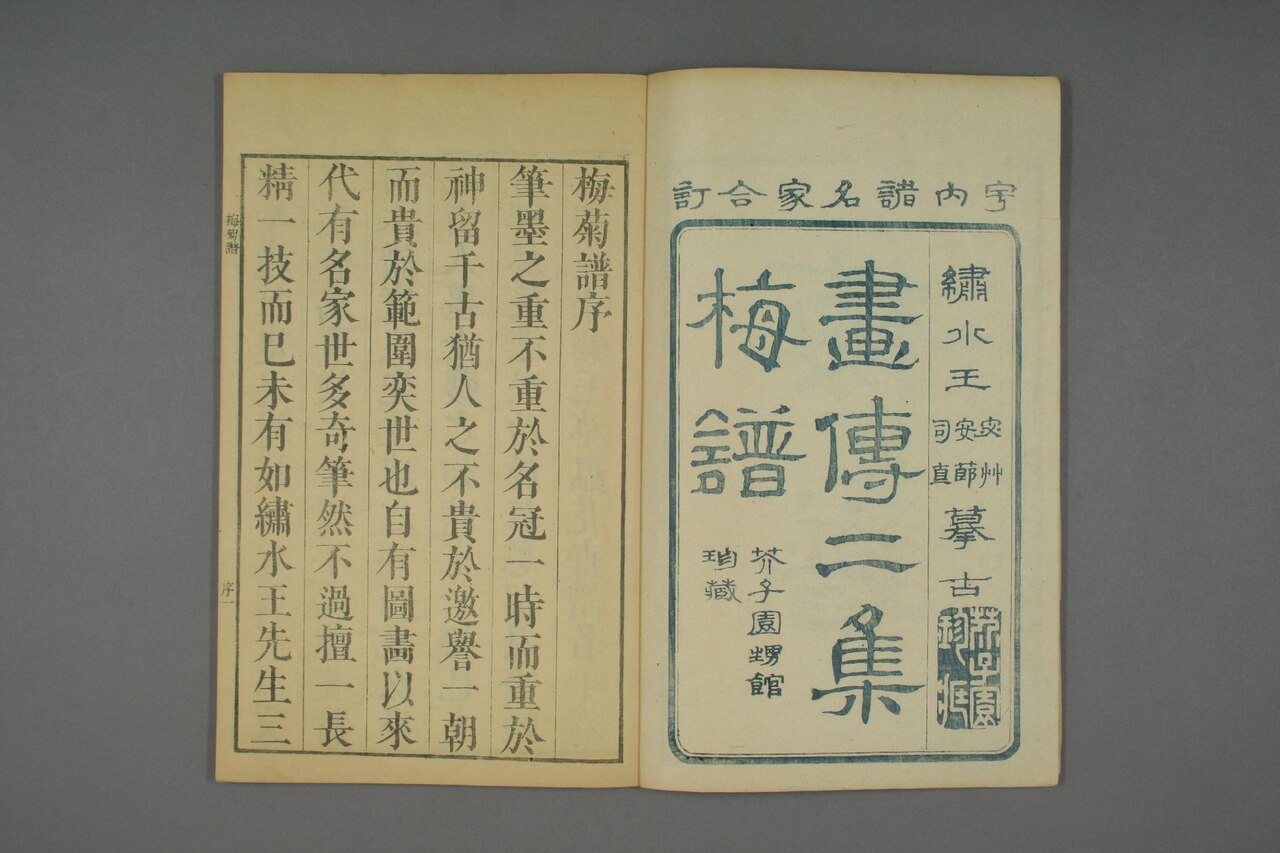 宇内諸名家合訂
繡水王宓艸安節司直摹古
芥子園
畫傳二集
梅譜
芥子園甥館
珍藏
梅菊譜序
筆墨之重不重於名冠一時而重於
神留千古猶人之不貴於邀譽一朝
而貴於範圍奕世也自有圖畫以來
代有名家世多奇筆然不過擅一長
精一技而巳未有如繡水王先生三
梅菊譜
序一